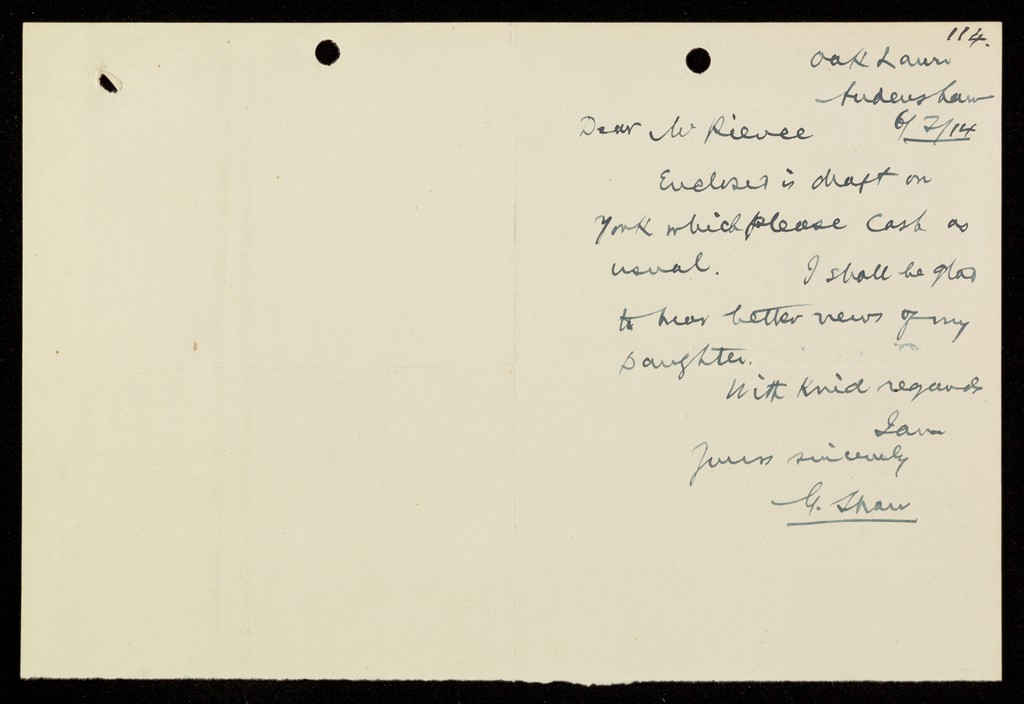 114.
Oak Lawn
Audenshaw
6/7/14
Dear Mr Pierce
Enclosed is draft on
York which please cash as
usual. I shall be glad
to hear better news of my
Daughter.
With Kind regards
I am
Yours sincerely
G. Shaw